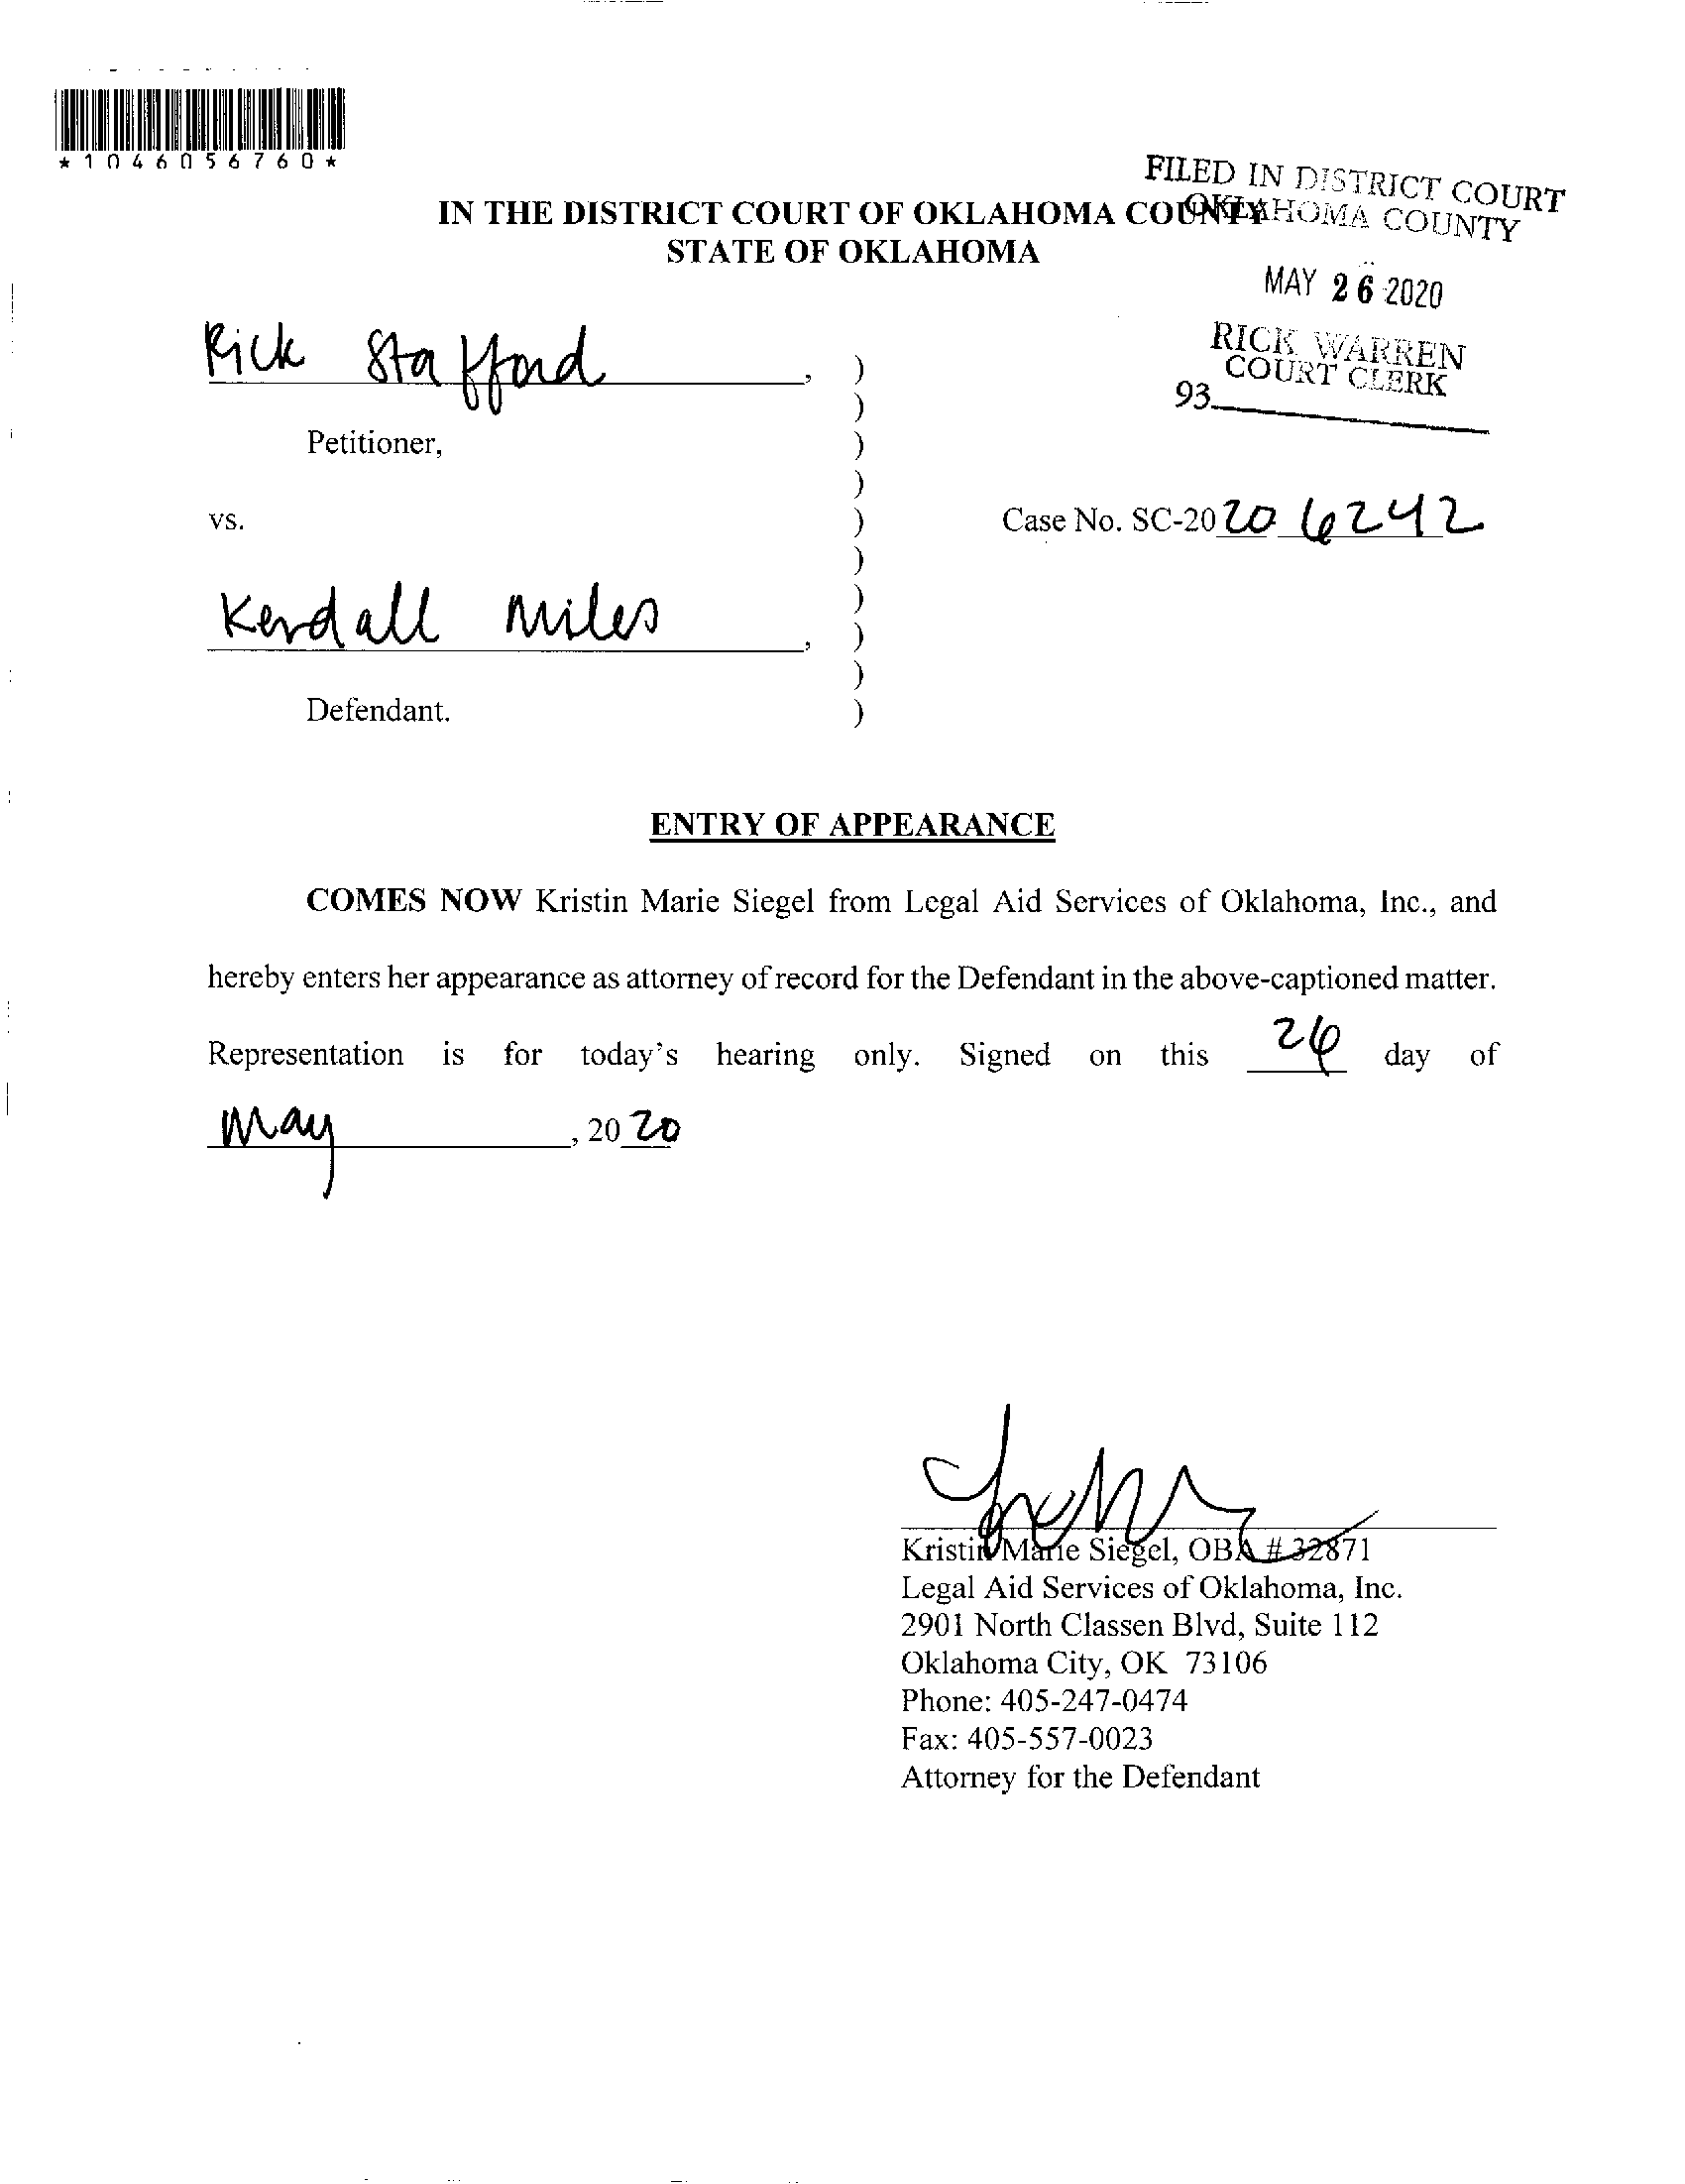 *1046056760*
FILED IN DISTRICT COURT
OKLAHOMA COUNTY
IN THE DISTRICT COURT OF OKLAHOMA COUNTY
STATE OF OKLAHOMA
MAY 26 2020
RICK WARREN
COURT CLERK
93
Rick Stafford, )
)
Petitioner, )
)
vs. ) Case No. SC-2020 6242
)
)
Kendall Miles, )
)
Defendant. )
ENTRY OF APPEARANCE
COMES NOW Kristin Marie Siegel from Legal Aid Services of Oklahoma, Inc., and
hereby enters her appearance as attorney of record for the Defendant in the above-captioned matter.
Representation is for today's hearing only. Signed on this 26 day of
May, 2020
Kristin Marie Siegel, OBA # 32871
Legal Aid Services of Oklahoma, Inc.
2901 North Classen Blvd, Suite 112
Oklahoma City, OK 73106
Phone: 405-247-0474
Fax: 405-557-0023
Attorney for the Defendant